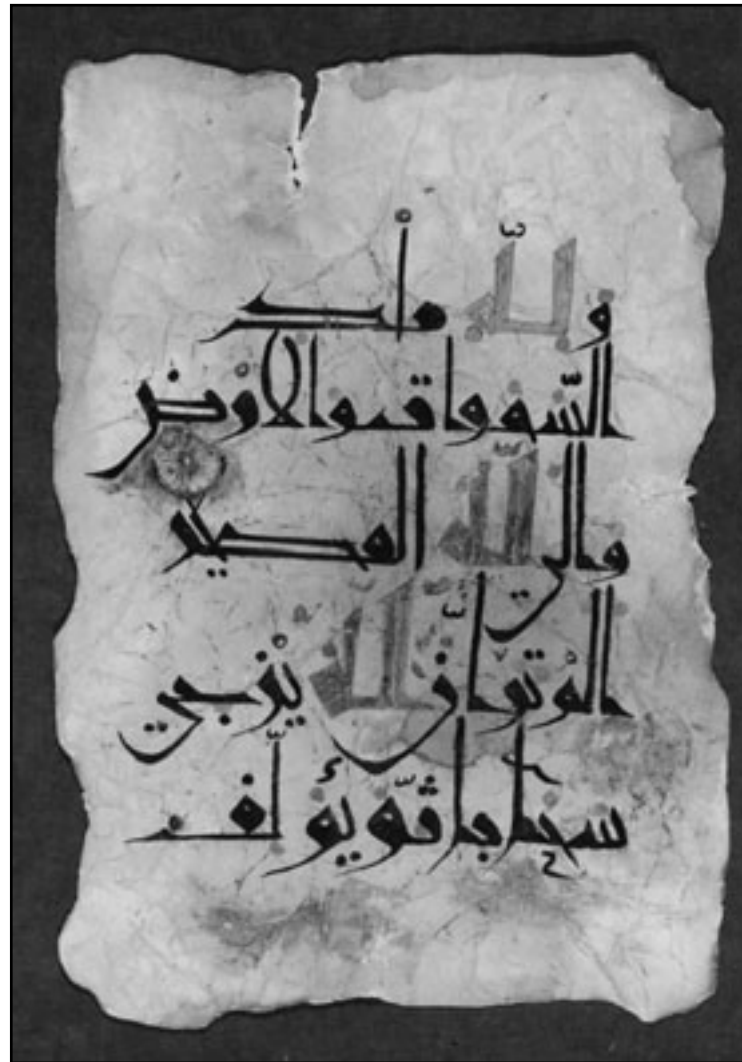 ولله ملك
السّموات والارض
والى الله المصير
الم تر انّ الله يزجي
سحابا ثمّ يؤلّف